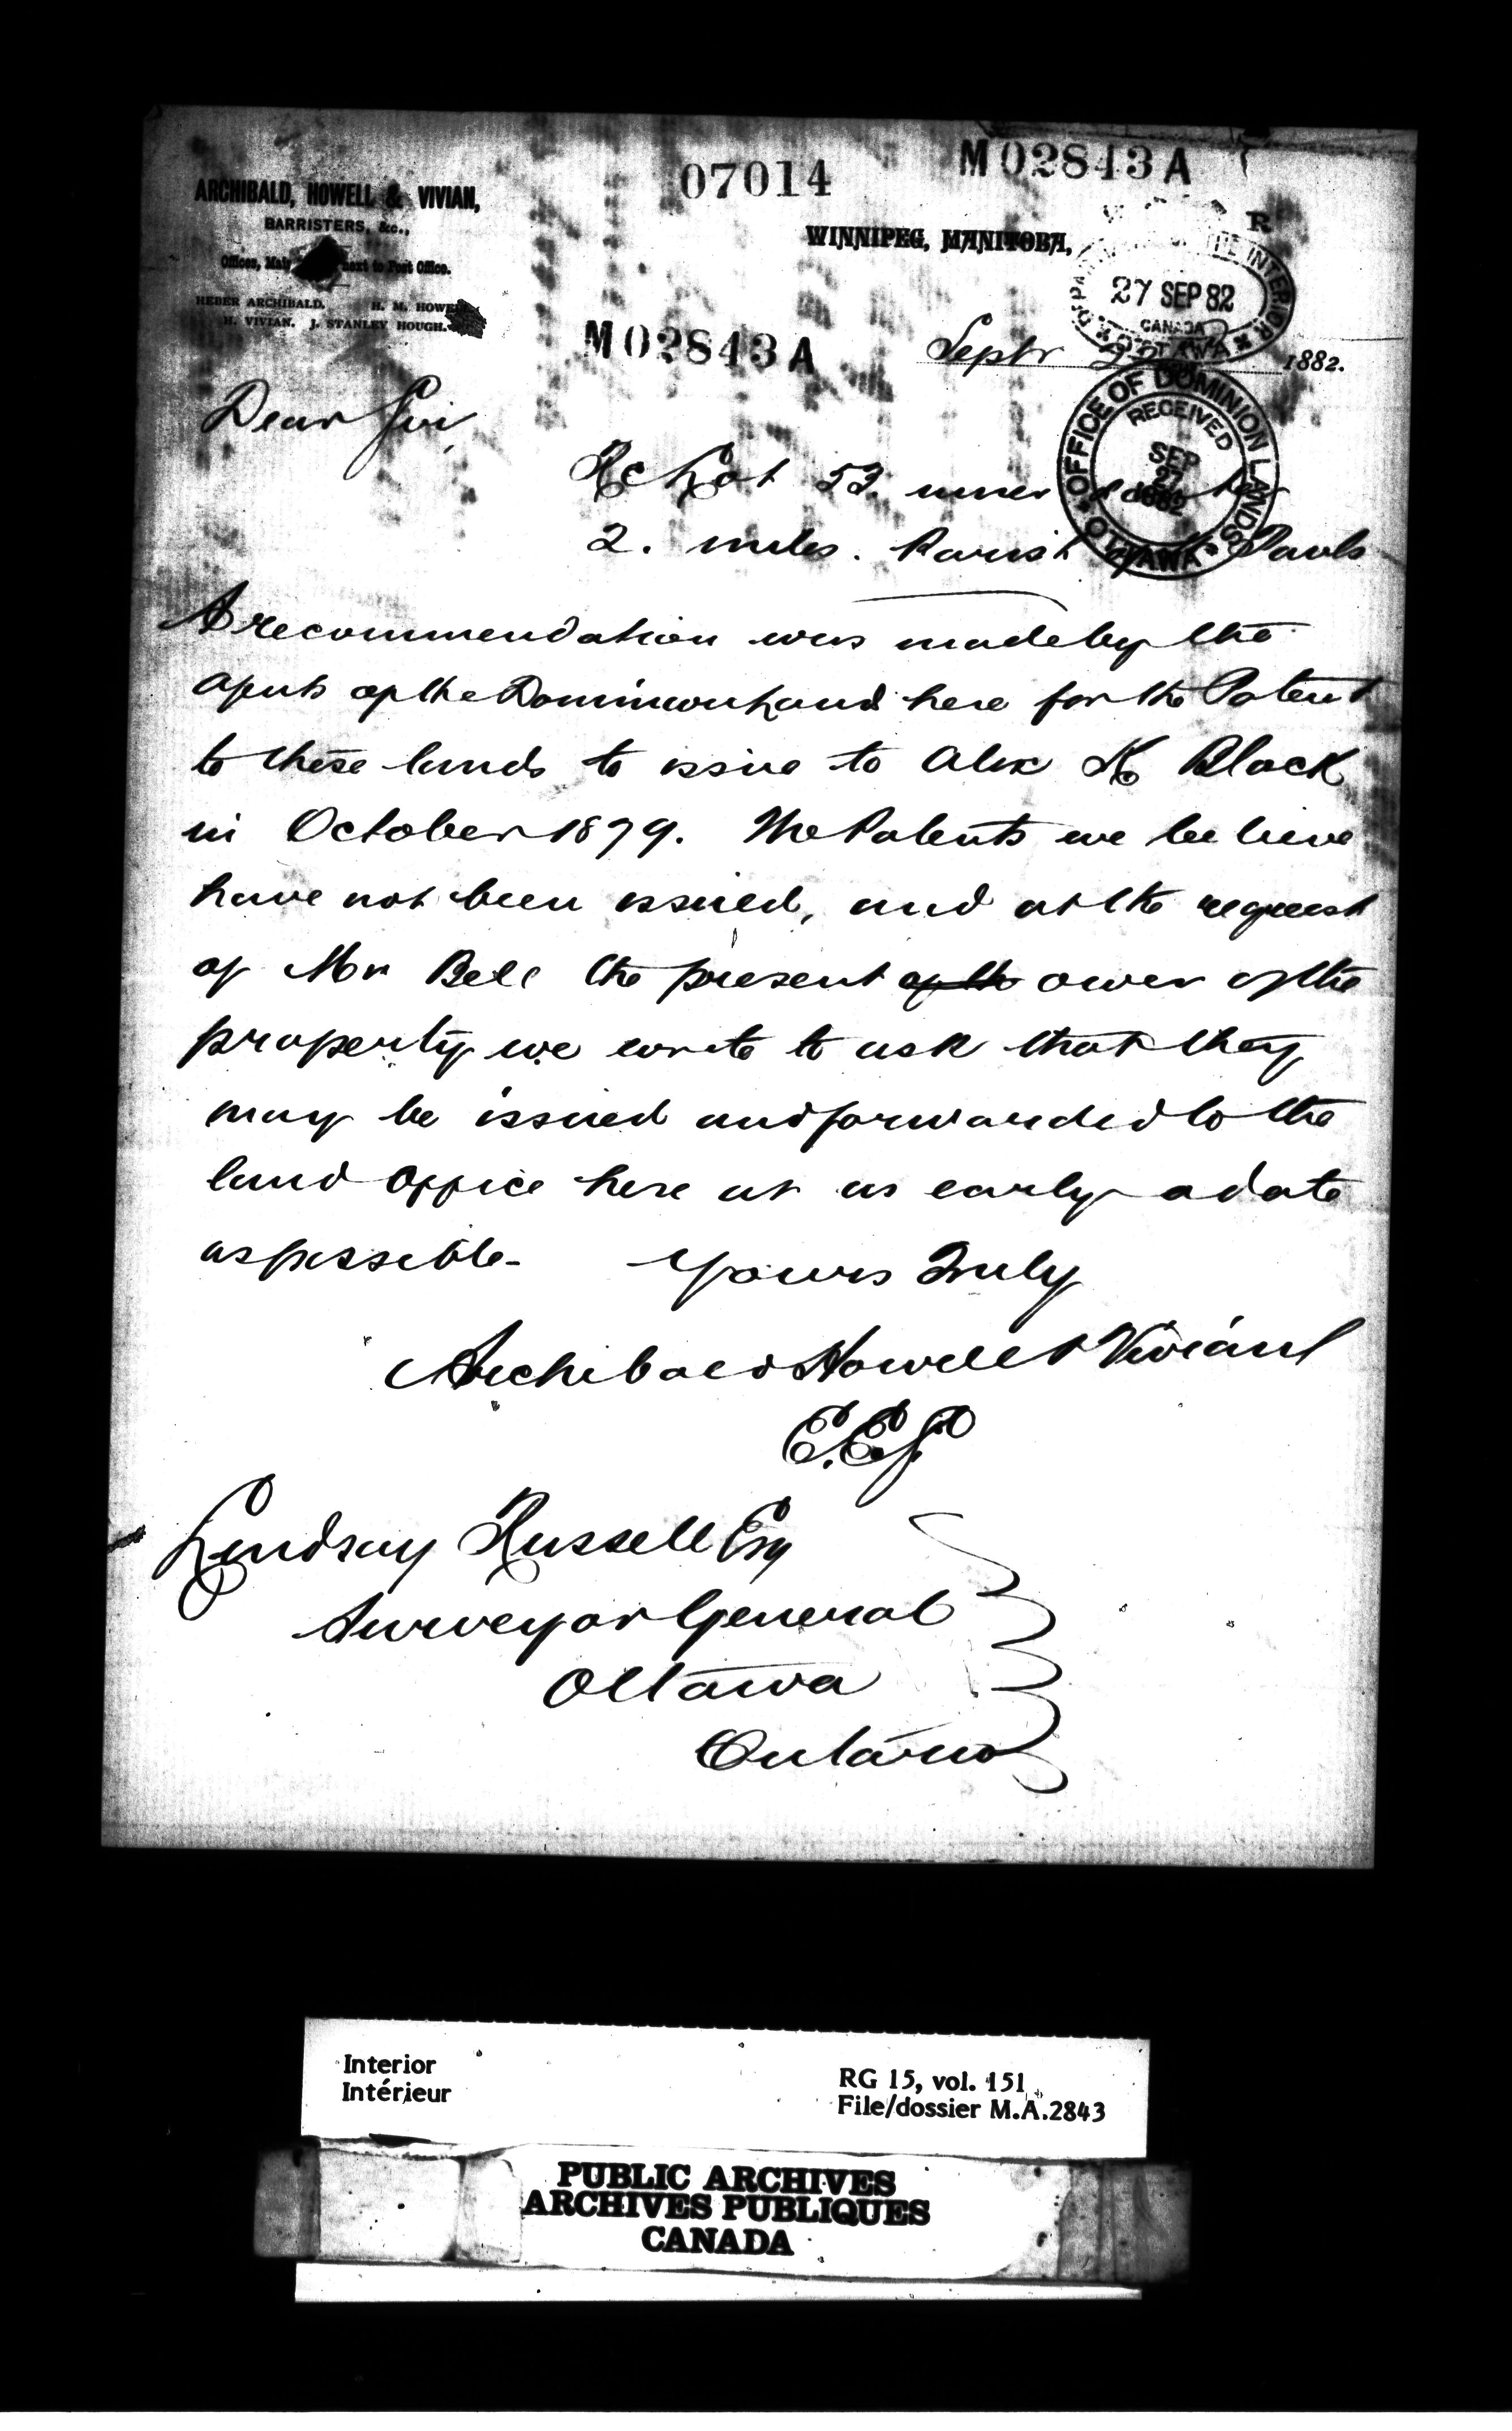 07014
M02843A
ARCHIBALD, HOWELL & VIVIAN,
BARRISTERS, &c.,
Offices, Main next to Post Office.
HEBER ARCHIBALD. H. M. HOWELL
H. VIVIAN. J. STANLEY HOUGH.
WINNIPEG, MANITOBA,
R
DEPARTMENT OF THE INTERIOR
27 SEP 82
CANADA
OTTAWA
M02843A
Septr 1882.
OFFICE OF DOMINION LANDS
RECEIVED
SEP
27
1882
OTTAWA
Dear Sir
Re Lot 53 inner
2. miles. Parish Pauls
A recommendation was made by the
agents of the Dominion Land here for the Patent
to these lands to issue to Alex K Black
in October 1879. The Patents we believe
have not been issued, and at the request
of Mr Bell the present of th ower of the
property we wrote to ask that they
may be issued and forwarded to the
land Office here at as early a date
as possible. Yours Truly
Archibald Howell & Vivian
Lindsay Russell Esq
Surveyor General
Ottawa
Ontario
Interior
Intérieur
RG 15, vol. 151
File/dossier M.A.2843
PUBLIC ARCHIVES
ARCHIVES PUBLIQUES
CANADA